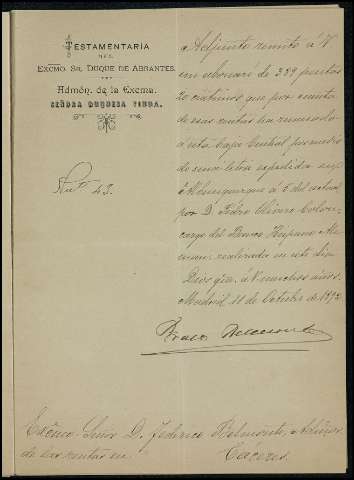 TESTAMENTARÍA
DEL
EXCMO. SR. DUQUE DE ABRANTES.
Admón. de la Excma.
SEÑORA DUQUESA VIUDA.
Núm. 43.
Adjunto remito á V.
un abonaré de 389 pesetas
20 céntimos que por cuenta
de esas rentas ha
esta Caja Central por medio
de una letra expedida en
Alburquerque á 5 del actual
por D. Pedro
cargo del Banco Hispano Ale
man realizada en este dia
Dios gue. á V. muchos años.
Madrid 11 de Octubre de 1892
Belmonte
Excmo Señor D. Federico Belmonte, Admor.
de las rentas en Cáceres.